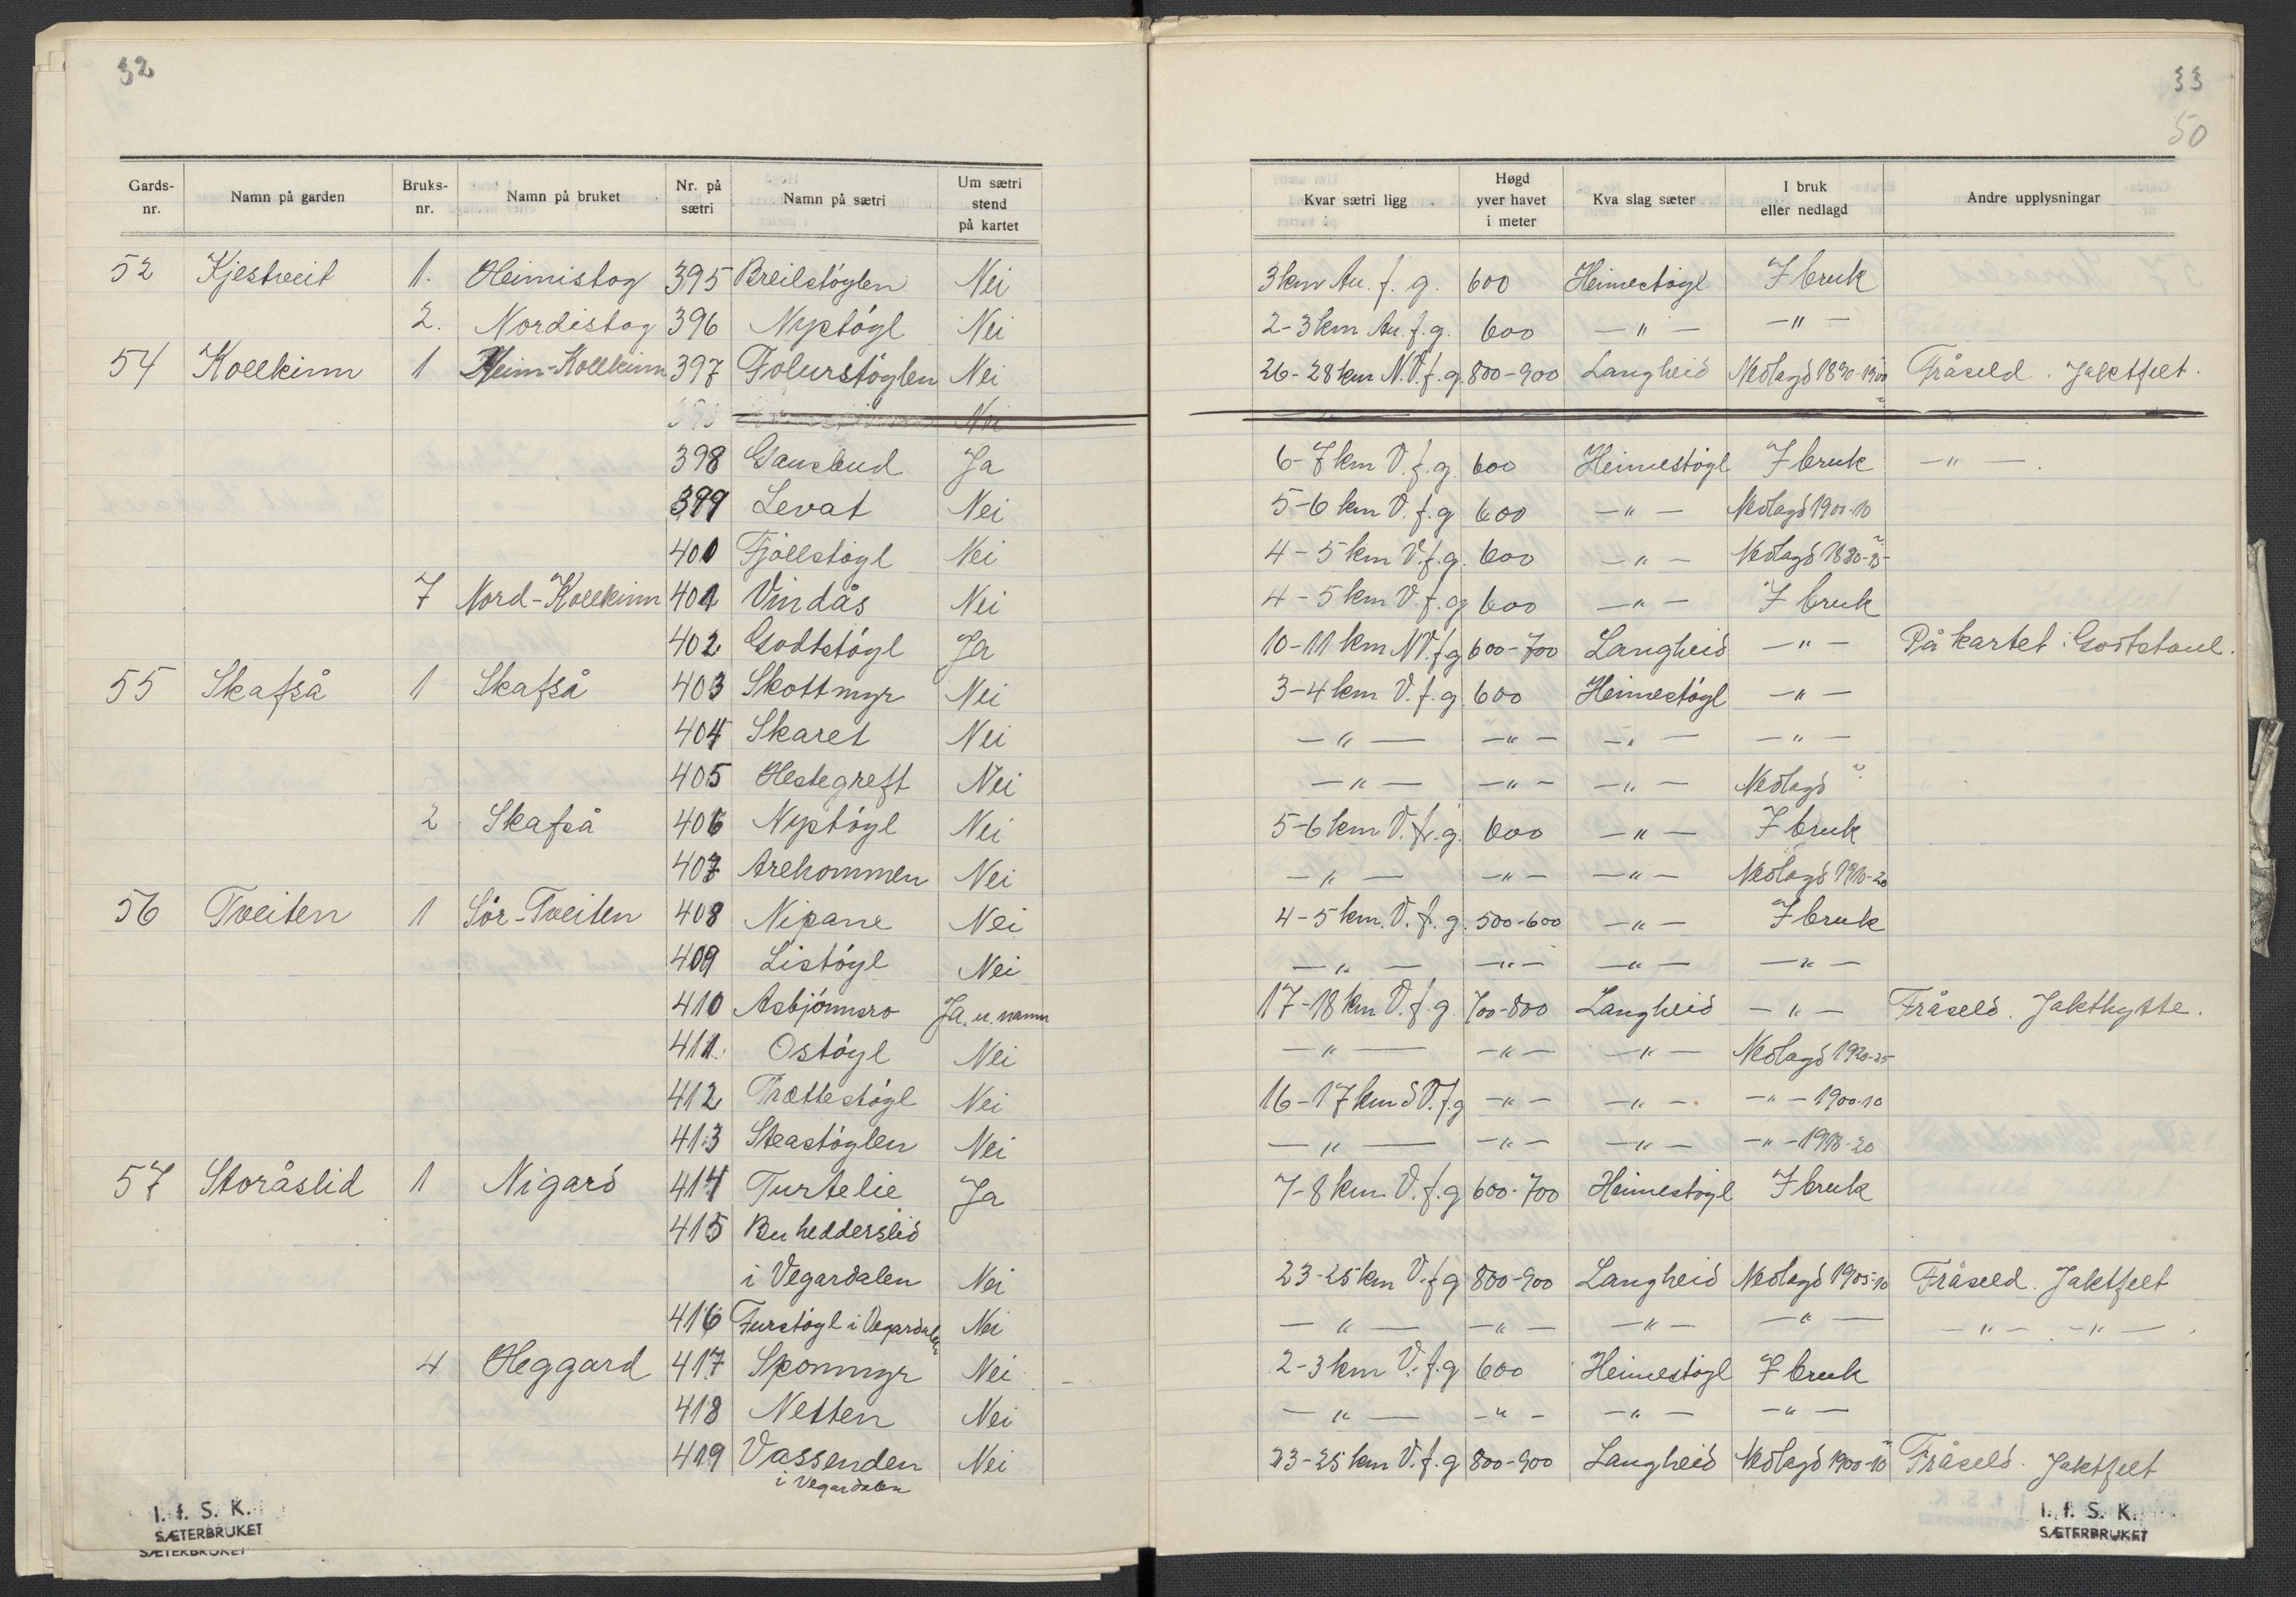 32
Gards-nr. Namn på garden Bruks-nr. Namn på bruket Nr. på sætri Namn på sætri Um sætri stend på kartet
52 Kjestveit 1. Heimistog 395 Breilstøylen Nei
2. Nordistog 396 Nystøyl Nei
54 Kollkinn 1 Heim-Kollkinn 397 Folurstøylen Nei
Nei
398 Gausbud Ja
399 Levat Nei
400 Fjøllstøyl Nei
7 Nord-Kollkinn 401 Vindås Nei
402 Godtstøyl Ja
55 Skafså 1 Skafså 403 Skottmyr Nei
404 Skaret Nei
405 Hestegreft Nei
2 Skafså 406 Nystøyl Nei
407 Arehommen Nei
56 Tveiten 1 Sør-Tveiten 408 Nipane Nei
409 Listøyl Nei
410 Asbjørnsro Ja, u. namn
411 Ostøyl Nei
412 Trættestøyl Nei
413 Steastøylen Nei
57 Storåslid 1 Nigard 414 Turtelie Ja
415 Buhedderslid
i Vegardalen Nei
416 Furstøyl i Vegardalen Nei
4 Heggard 417 Sponmyr Nei
418 Netten Nei
419 Vassenden Nei
i Vegardalen
I. f. S. K.
SÆTERBRUKET
SÆTERBRUKET
33
50
Kvar sætri ligg Høgd yver havet i meter Kva slag sæter I bruk eller nedlagd Andre upplysningar
3 km Au. f. g. 600 Heimestøyl I bruk
2-3 km Au. f. g. 600 — " — — " —
26-28 km N.V. f. g. 800-900 Langheid Nedlagd 1890-1900 Fråseld. Jaktfelt.
6-7 km V. f. g. 600 Heimestøyl I bruk — " —.
5-6 km V. f. g 600 — " — Nedlagd 1900-10
4-5 km V. f. g. 600 — " — Nedlagd 1880-85
4-5 km V. f. g 600 — " — I bruk
10-11 km NV. f g 600-700 Langheid — " — På kartet: Godtstaul.
3-4 km V. f. g 600 Heimestøyl — " —
— " — — " — — " — — " —
— " — — " — — " — Nedlagd ?
5-6 km V. f. g. 600 — " — I bruk
— " — — " — — " — Nedlagd 1910-20
4-5 km. V. f. g. 500-600 — " — I bruk
— " — — " — — " — — " —
17-18 km V. f. g. 700-800 Langheid — " — Fråseld. Jakthytte.
— " — — " — — " — Nedlagd 1920-25
16-17 km SV. f. g — " — — " — — " — 1900-10
— " — — " — — " — — " — 1918-20
7-8 km. V. f. g 600-700 Heimestøyl I bruk
23-25 km V. f g 800-900 Langheid Nedlagd 1905-10 Fråseld. Jaktfelt
— " — — " — — " — — " — — " —. — " —.
2-3 km V. f. g 600 Heimestøyl I bruk
— " — — " — — " — — " —
23-25 km V. f. g 800-900 Langheid Nedlagd 1900-10 Fråseld. Jaktfelt
I. f. S. K.
SÆTERBRUKET